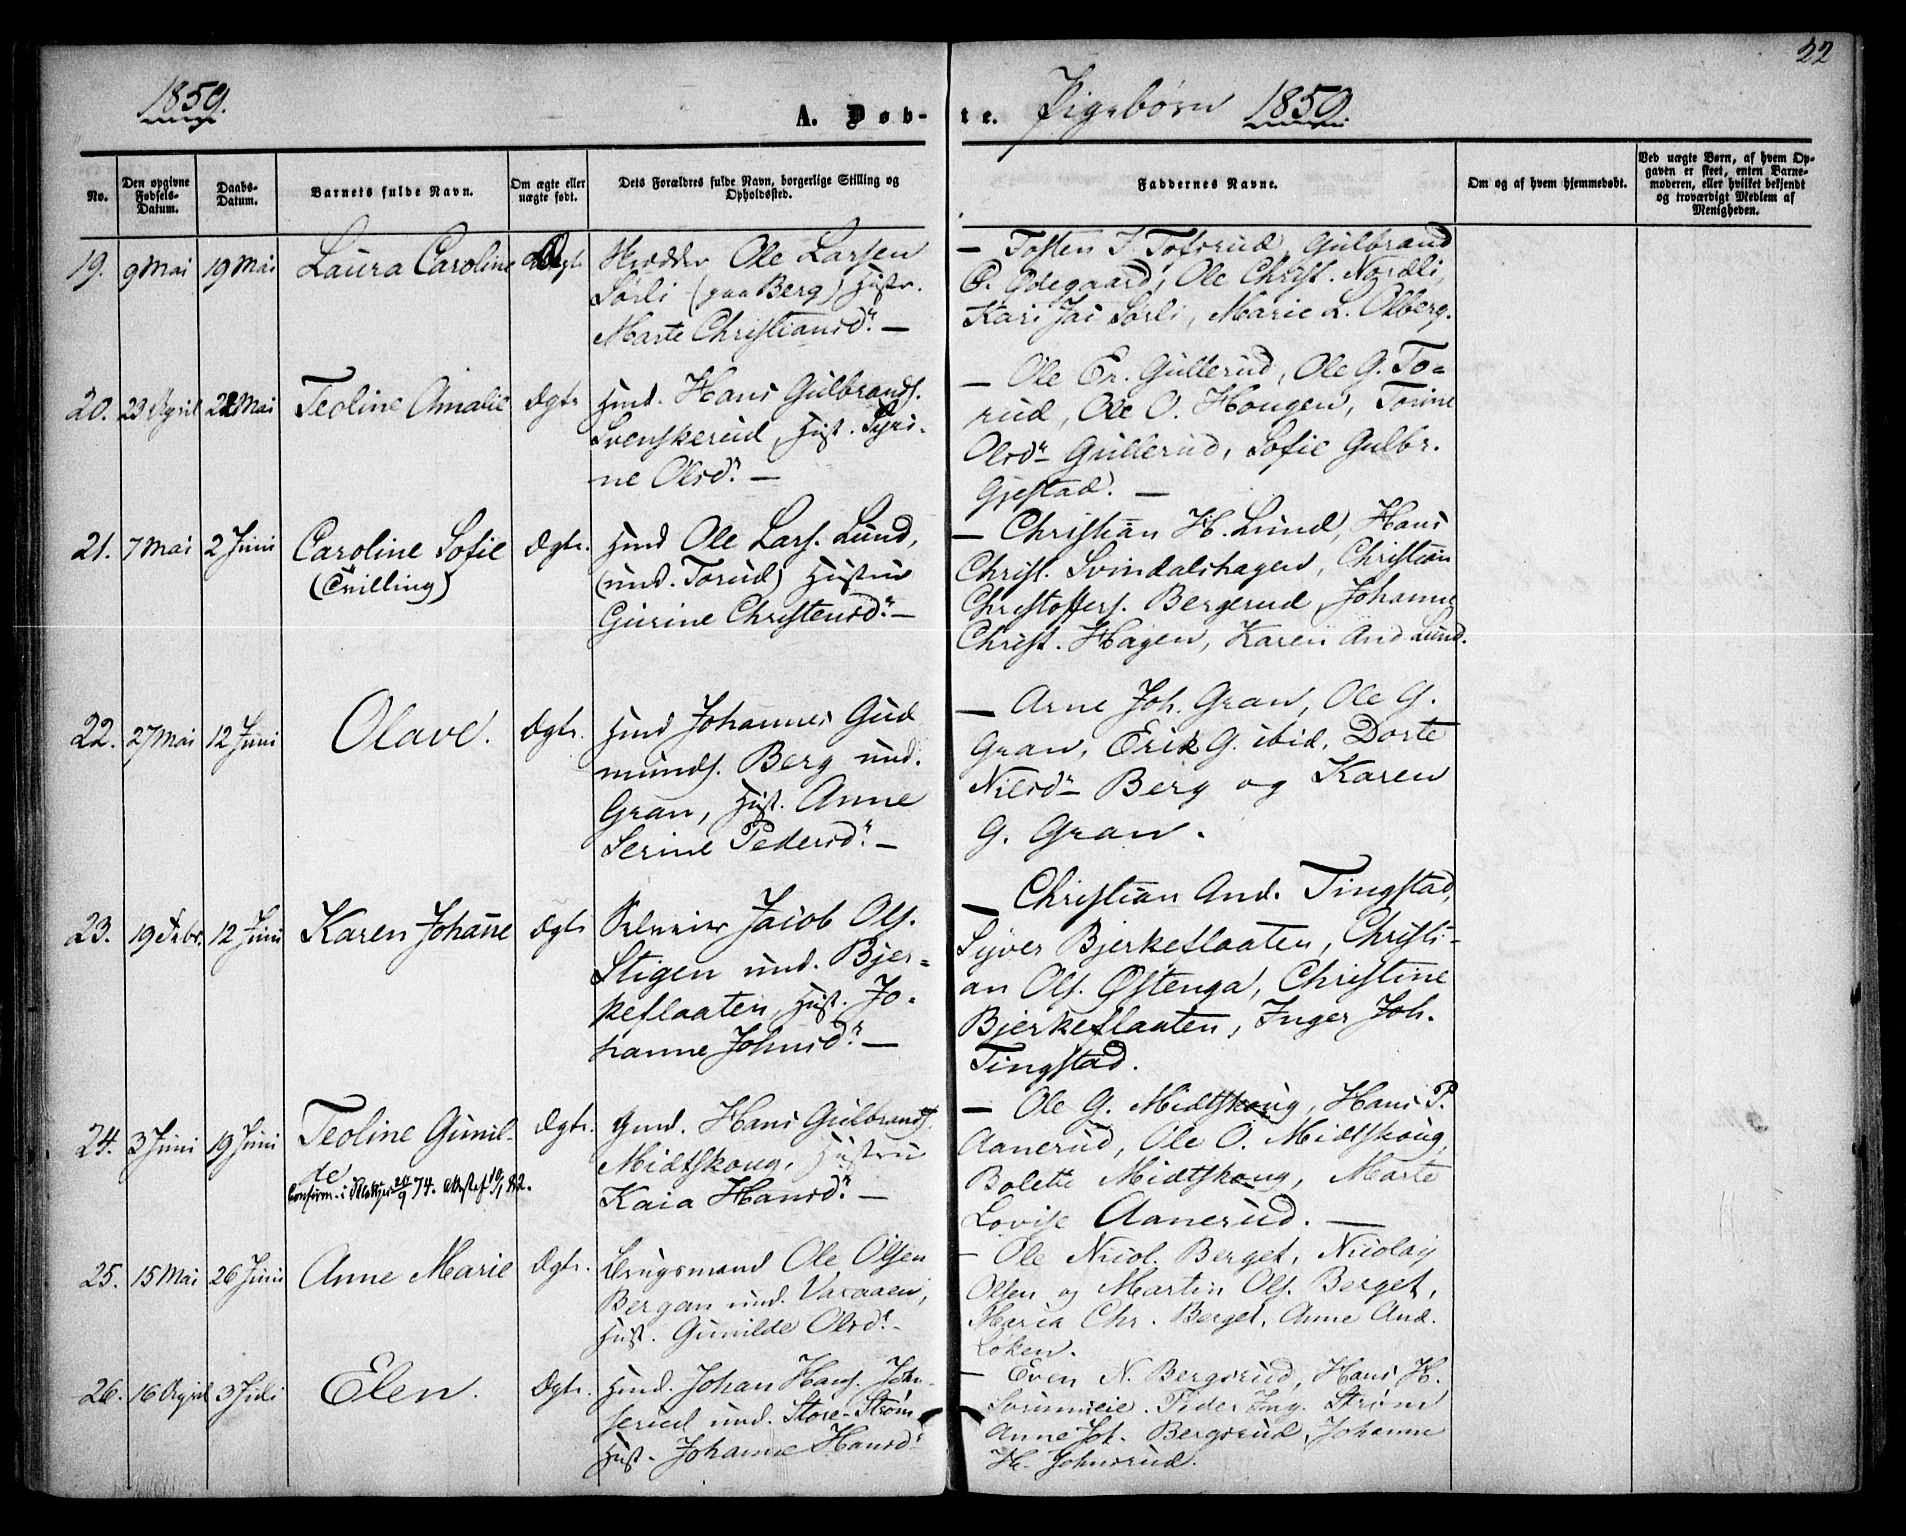 22
1859.
A. Døb-
te. Pigebørn 1859.
No.
Den opgivne Fødsels-Datum.
Daabs-Datum.
Barnets fulde Navn.
Om ægte eller uægte født.
Dets Forældres fulde Navn, borgerlige Stilling og Opholdssted.
Faddernes Navne.
Om og af hvem hjemmedøbt.
Ved uægte Børn, af hvem Opgaven er skeet, enten Barnemoderen, eller hvilket bekjendt og troværdigt Medlem af Menigheden.
19. 9 Mai 19 Mai Laura Caroline Ægte
Ole Larsen
Sørli (paa Berg) Hustr.
Marte Christiansdr. —
— Tosten T. Tofsrud, Gulbrand
O. Ødegaard, Ole Christ. Nordli,
Kari Jac Sørli, Marie L. Olberg.
20. 29 April 22 Mai Teoline Amalie dgtr
Hmd. Hans Gulbrands.
Svenskerud, Hust. Syri-
ne Olsdr. —
— Ole Er. Gullerud, Ole G. To-
rud, Ole O. Hougen, Torine
Olsdr Gullerud, Sofie Gulbr.
Gjestad. —
21. 7 Mai 2 Juni Caroline Sofie dgtr.
(Tvilling)
Hmd Ole Lars. Lund,
(und. Torud) Hustru
Gurine Christensdr. —
— Christian H. Lund, Hans
Christ. Svindalshagen, Christian
Christoffers. Bergerud, Johanne
Christ. Hagen, Karen And Lund.
22. 27 Mai 12 Juni Olave. dgtr.
Hmd Johannes Gud
munds. Berg und.
Gran, Hust. Anne
Serine Pedersdr. —
— Arne Joh. Gran, Ole G.
Gran, Erik G. ibid, Dorte
Nilsdr Berg og Karen
G. Gran.
23. 19 Febr. 12 Juni Karen Johanne dgtr
Jacob Ols.
Stigen und. Bjer-
keflaaten, Hust. Jo-
hanne Johnsdr. —
— Christian And. Tingstad,
Syver Bjerkeflaaten, Christi-
an Ols. Østenga, Christine
Bjerkeflaaten, Inger Joh.
Tingstad.
24. 3 Juni 19 Juni Teoline Gunil- dgtr.
de
Gmd. Hans Gulbrands.
Midtskoug, Hustru
Kaia Hansdr. —
— Ole G. Midtskoug, Hans P.
Aanerud, Ole O. Midtskoug,
Bolette Midtskoug, Marte
Lovise Aanerud. —
25. 15 Mai 26 Juni Anne Marie dgtr.
Brugsmand Ole Olsen
Bergan und.
Hust. Gunilde Olsdr. —
— Ole Nicol. Berget, Nicolay
Olsen og Martin Ols. Berget,
Maria Chr. Berget, Anne And.
Løken.
26. 16 April 3 Juli Elen. dgtr.
Hmd. Johan Hans. John
serud und. Store-Strøm
Hust. Johanne Hansdr
— Even N. Bergsrud, Hans H.
Peder Ing. Strøm
Anne Joh. Bergsrud, Johanne
H. Johnsrud.